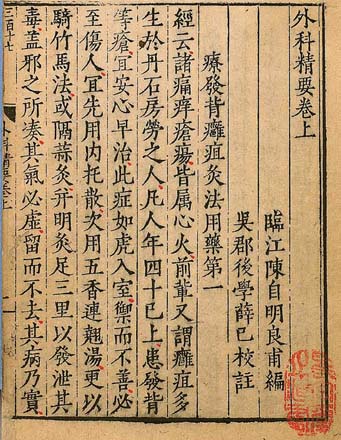 外科精要卷上
臨江陳自明良甫編
吳郡後學薛已校註
療發背癰疽灸法用藥第一
經云諸痛痒瘡瘍皆屬心火前輩又謂癰疽多
生於丹石房勞之人凡人年四十已上患發背
等瘡宜安心早治此症如虎入室禦而不善必
至傷人冝先用内托散次用五香連翹湯更以
騎竹馬法或隔蒜灸幷明灸足三里以發泄其
毒盖邪之所凑其氣必虛留而不去其病乃實
三百十七
外科精要卷上